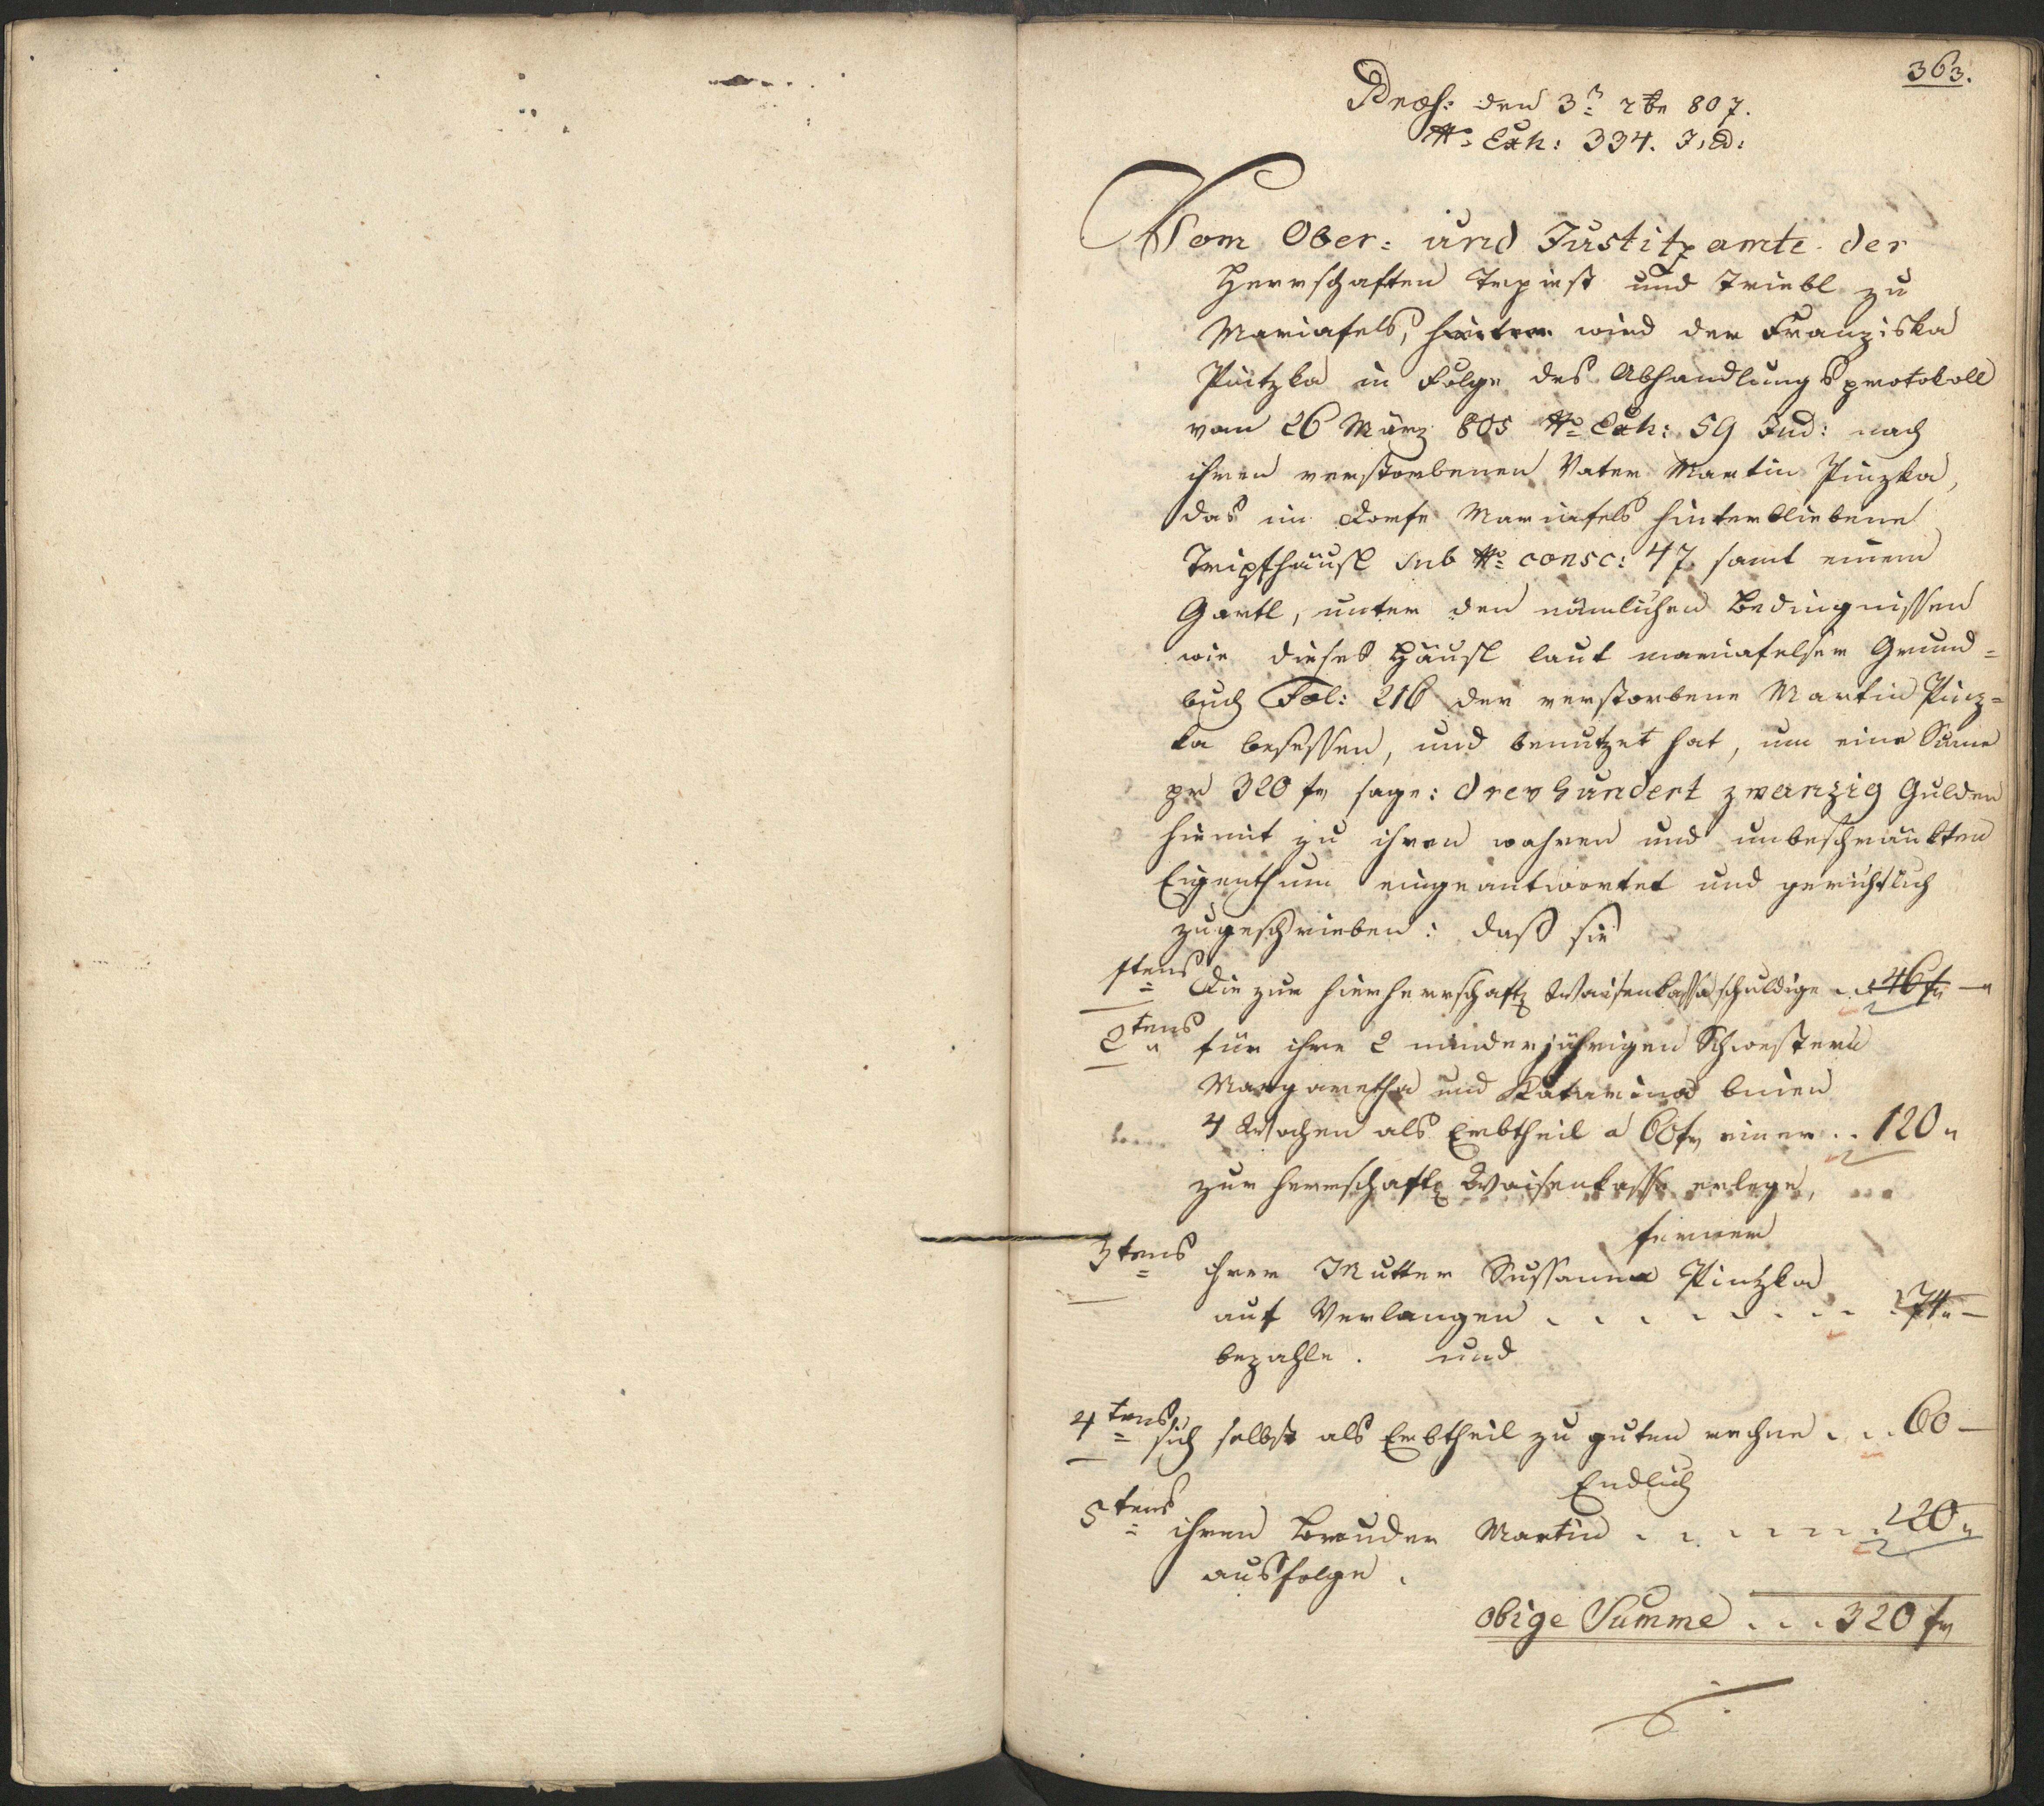 363.
Præs: den 3n xbr 807.
No Exh: 334. Jud:
Vom Ober= und Justitzamte der
Herrschaften Trpist und Triebl zu
Mariafels, wird der Franziska
Pintzka in Folge des Abhandlungsprotokoll
vom 26 März 805 No Exh: 59 Jud: nach
ihren verstorbenen Vater Martin Pinzka,
das im Dorfe Mariafels hinterbliebene
Tripfhäusl sub No consc: 47 samt einem
Gartl, unter den nämlichen Bedingnissen
wie dieses Häusl laut mariafelser Grund=
buch Fol: 216 der verstorbene Martin Pinz=
ka besessen, und benutzet hat, um eine Sume
pr 320 fr sage: dreyhundert zwanzig Gulden
hiemit zu ihren wahren und unbeschränkten
Eigenthum eingeantwortet und gerichtlich
zugeschrieben: daß sie
1tens die zur hierherrschaftl Waisenkassa schuldige .. 46 fr —
2tens für ihre 2 minderjährigen Schwestern
Margaretha und Katarina binen
4 Wochen als Erbtheil a 60 fr einer .. 120 "
zur herrschaftl Waisenkasse erlege,
ferner
3tens ihrer Mutter Sussanna Pintzka
auf Verlangen . . . . . . . . 74 " —
bezahle. und
4tens sich selbst als Erbtheil zu guten rechne . . . 60 —
Endlich
5tens ihren Bruder Martin . . . . . . 20 "
ausfolge.
obige Summe . . . 320 fr